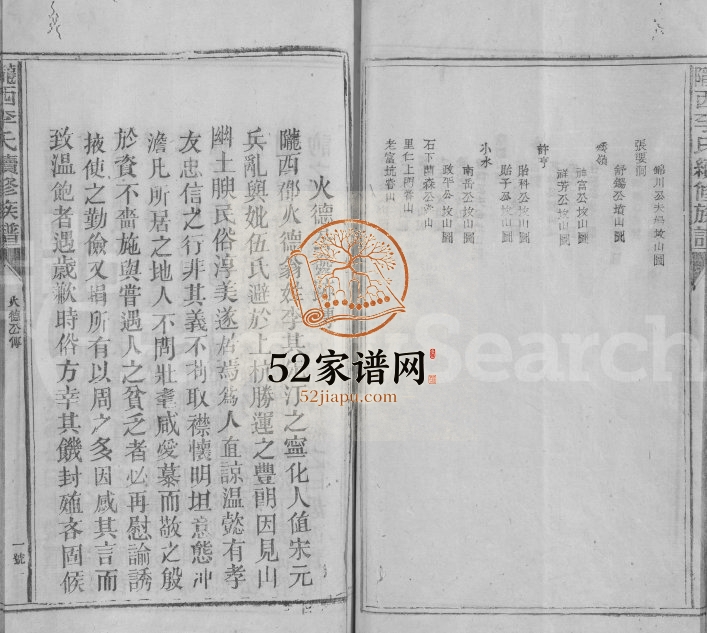 隴西李氏續修族譜
張瓊洞
錦川公
舒錫公墳山圖
秀嶺
神富公坟山圖
祥芳公坟山圖
許亨
貽科公坟山圖
貽予公坟山圖
小水
南岳公坟山圖
政平公坟山圖
石下
里仁上
老富坑
火德
隴西郡火德翁姓李
汀之寧化人值宋元
兵亂與妣伍氏避於上杭勝運之豐朗因見山
幽土腴民俗淳美遂居焉為人直諒温懿有孝
友忠信之行非其義不苟取襟懷明坦意態冲
澹凡所居之地人不問壯耄咸愛慕而敬之殷
於資不嗇施與嘗遇人之貧乏者必再慰諭誘
掖使之勤儉又捐所有以周之多因感其言而
致温飽者遇歲歉時俗方幸其饑封殖吝固候
隴西李氏續修族譜
火德公傳
一號
52家谱网
52jiapu.com
Search